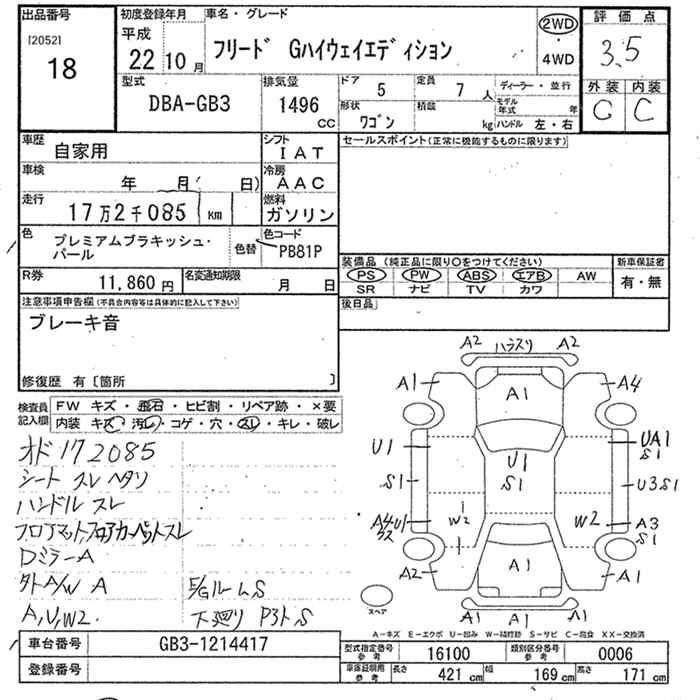 出品番号
[2052]
18
初度登録年月
平成
22 10 月
車名・グレード
フリード Gハイウェイエディション
2WD
・
4WD
評価点
3.5
外装 内装
C C
型式
DBA-GB3
排気量
1496
CC
ドア
5
定員
7 人
ディーラー・並行
モデル年式 年
形状
ワゴン
積載
kg
ハンドル 左・右
車歴
自家用
シフト
IAT
セールスポイント(正常に機能するものに限ります)
車検
年 月( 日)
冷房
AAC
走行
17万2千085 km
燃料
ガソリン
色
プレミアムブラキッシュ・
パール
色替
色コード
PB81P
装備品 (純正品に限り○をつけてください)
PS PW ABS エアB AW
SR ナビ TV カワ
新車保証書
有・無
R券
11,860 円
名変通知期限
月 日
後日品
注意事項申告欄(不具合内容等は具体的に記入して下さい)
ブレーキ音
修復歴 有〔箇所 〕
検査員
記入欄
FW キズ・飛石・ヒビ割・リペア跡・×要
内装 キズ・汚レ・コゲ・穴・スレ・キレ・破レ
オド 172085
シート スレ ヘタリ
ハンドル スレ
フロアマット,フロアカーペットスレ
Dミラー A
外A/W A E/Gルーム S
A,U,W2 下廻り P3ト,S
A2 ハラスリ A2
A1 A1 A4
U1 U1 UA1
S1
S1 S1 U3 S1
A4 U1 W2 W2 A3
S1
A2 A1 A1
A1 A1 A1
スペア
A-キズ E-エクボ U-凹み W-補修跡 S-サビ C-腐食 XX-交換済
車台番号
GB3-1214417
登録番号
型式指定番号
参考
16100
類別区分番号
参考
0006
車庫証明用
参考
長さ 421 cm 幅 169 cm 高さ 171 cm